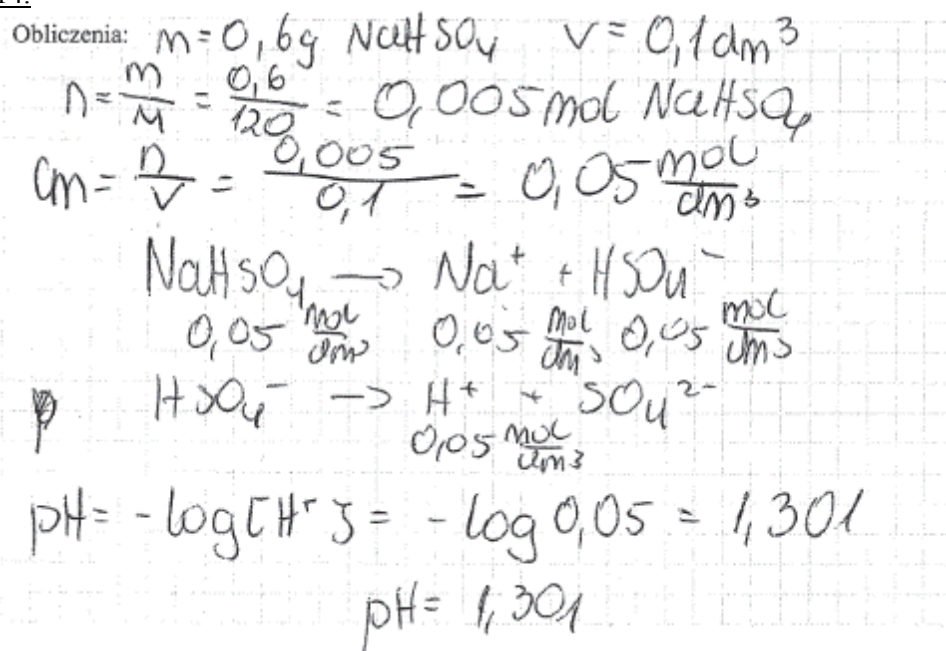 14.
Obliczenia: m = 0,6g NaHSO₄ V = 0,1dm³
n = m/M = 0,6/120 = 0,005 mol NaHSO₄
Cm = n/V = 0,005/0,1 = 0,05 mol/dm³
NaHSO₄ → Na⁺ + HSO₄⁻
0,05 mol/dm³ 0,05 mol/dm³ 0,05 mol/dm³
HSO₄⁻ → H⁺ + SO₄²⁻
0,05 mol/dm³
pH = -log[H⁺] = -log 0,05 = 1,301
pH = 1,301